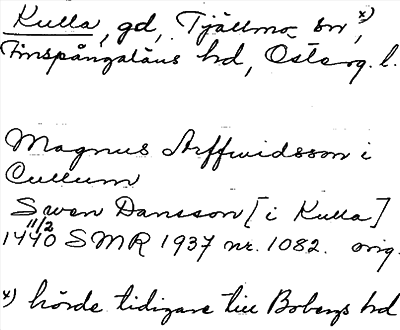 Kulla, gd, Tjällmo sn x),
Finspångaläns hd, Österg. l.
Magnus Arffwidsson i
Cullum
Swen Dansson [i Kulla]
11/2
1440 SMR 1937 nr. 1082. orig.
x) hörde tidigare till Bobergs hd